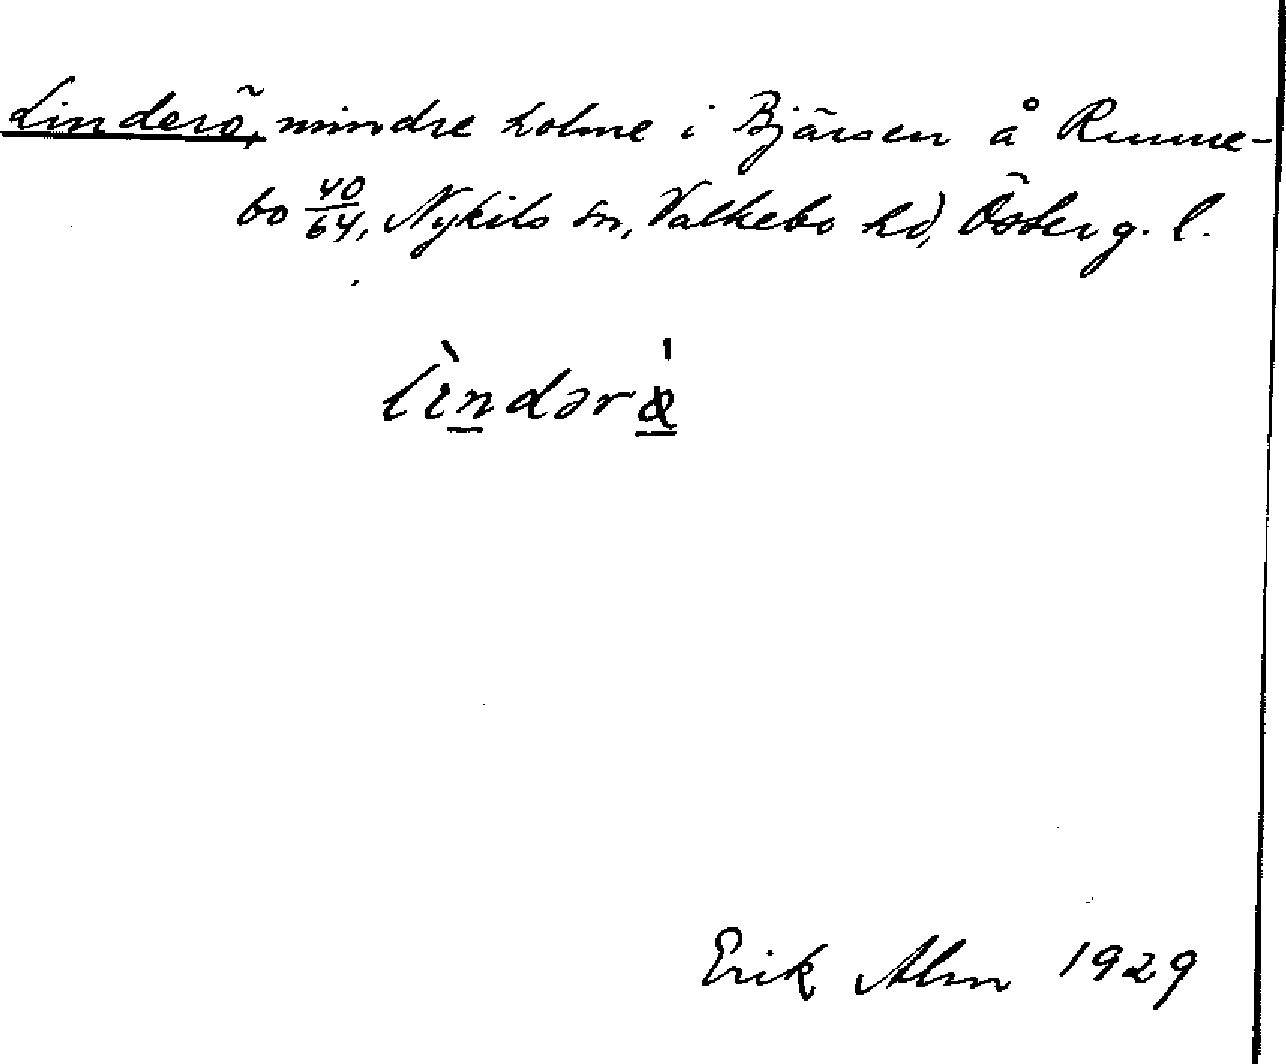 Linderö, mindre holme i Bjärsen å Runne-
bo 40/64, Nykils sn, Valkebo hd, Österg. l.
lìndərö̀
Erik Alm 1929